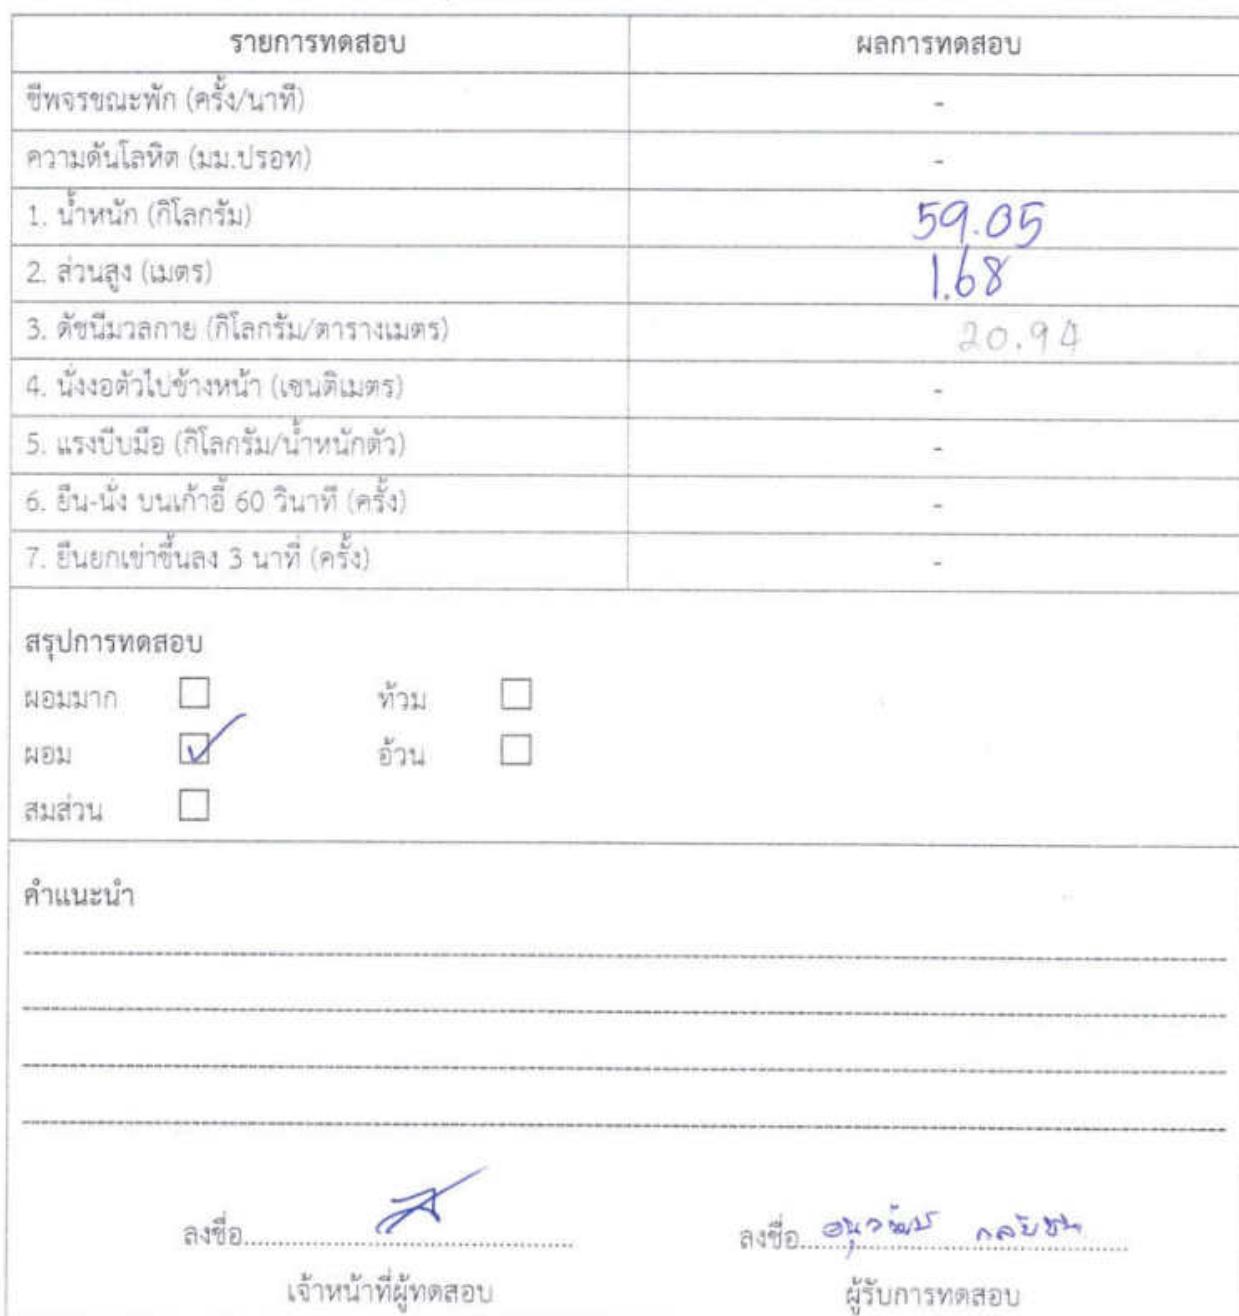 รายการทดสอบ ผลการทดสอบ
ชีพจรขณะพัก (ครั้ง/นาที) -
ความดันโลหิต (มม.ปรอท) -
1. น้ำหนัก (กิโลกรัม) 59.05
2. ส่วนสูง (เมตร) 1.68
3. ดัชนีมวลกาย (กิโลกรัม/ตารางเมตร) 20.94
4. นั่งงอตัวไปข้างหน้า (เซนติเมตร) -
5. แรงบีบมือ (กิโลกรัม/น้ำหนักตัว) -
6. ยืน-นั่ง บนเก้าอี้ 60 วินาที (ครั้ง) -
7. ยืนยกเข่าขึ้นลง 3 นาที (ครั้ง) -
สรุปการทดสอบ
ผอมมาก ท้วม
ผอม อ้วน
สมส่วน
คำแนะนำ
ลงชื่อ ลงชื่อ
เจ้าหน้าที่ผู้ทดสอบ ผู้รับการทดสอบ